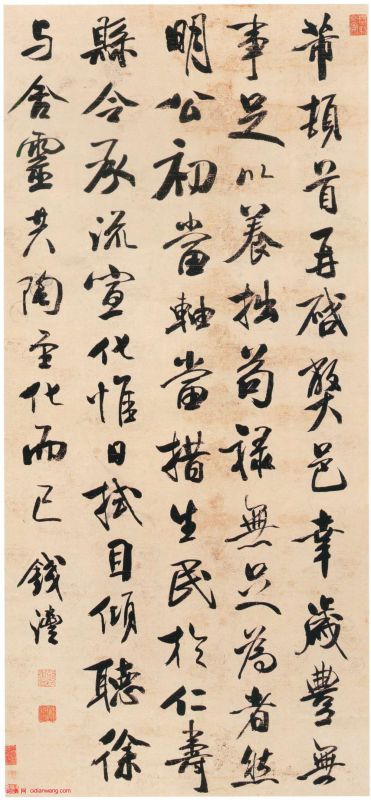 芾頓首再啓獘邑幸歲豐無
事足以養拙苟禄無足為者然
明公初當軸當措生民於仁壽
縣令承流宣化惟日拭目傾聽徐
与含靈共陶至化而已 錢灃
cidianwang.com